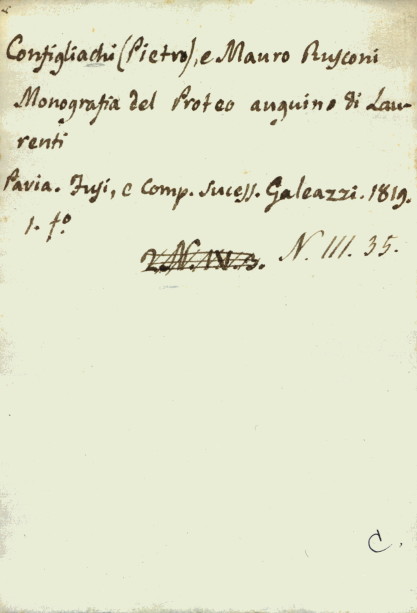 Configliachi (Pietro), e Mauro Rusconi
Monografia del Proteo anguino di Lau-
renti
Pavia. Fusi, e Comp. sucess. Galeazzi. 1819.
1. f.º
2. N. IV. 3. N. III. 35.
C.